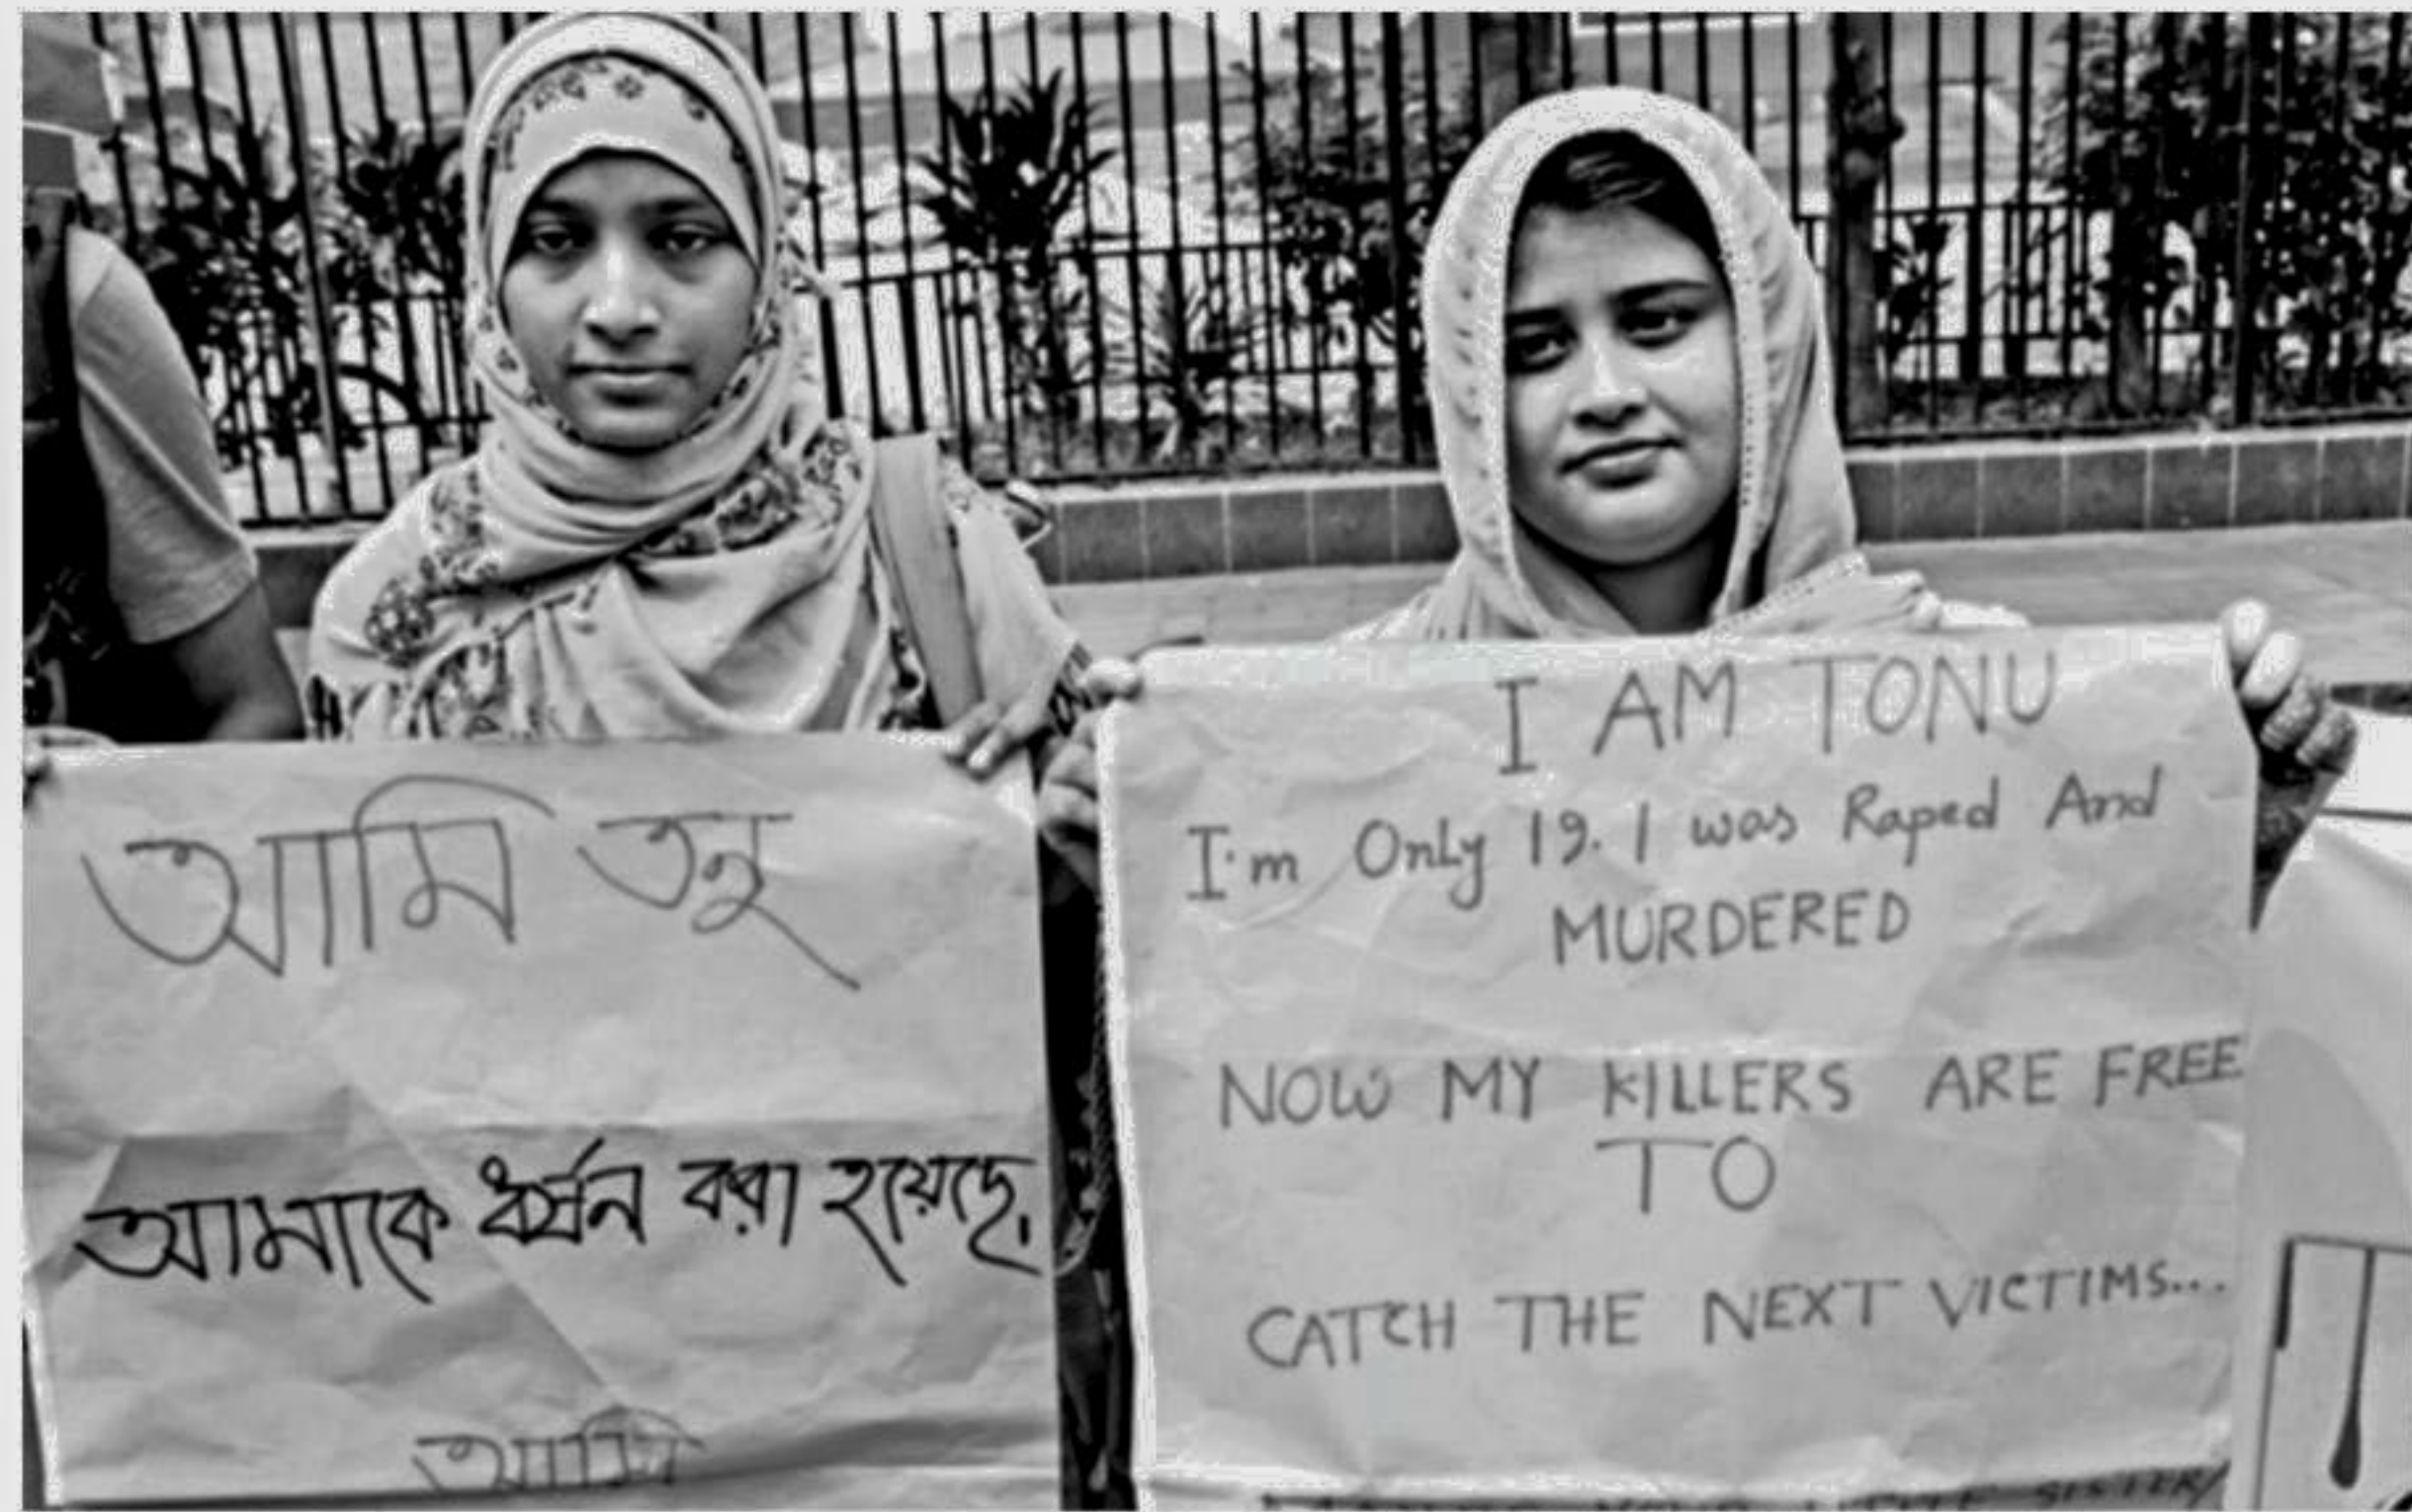 আমি তনু
আমাকে ধর্ষন করা হয়েছে,
আমি
I AM TONU
I'm Only 19. I was Raped And
MURDERED
NOW MY KILLERS ARE FREE
TO
CATCH THE NEXT VICTIMS...
SISTER